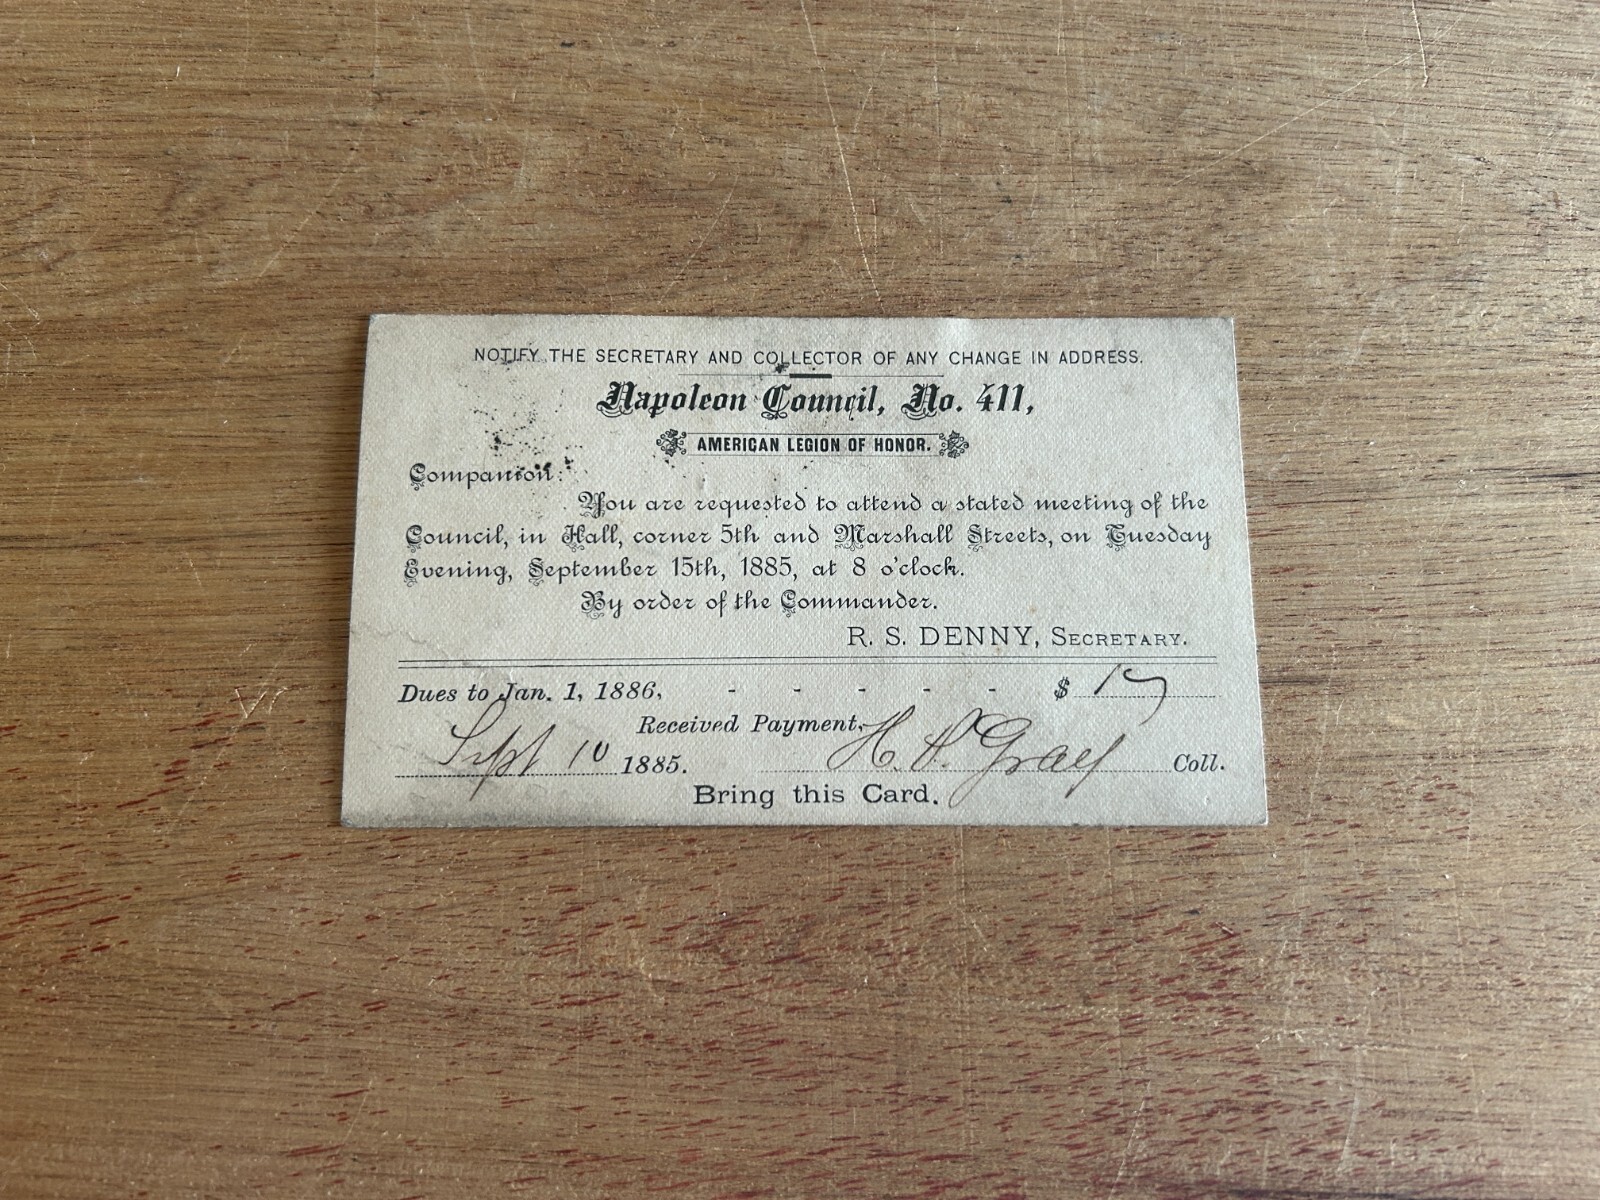 NOTIFY THE SECRETARY AND COLLECTOR OF ANY CHANGE IN ADDRESS.
Napoleon Council, No. 411,
AMERICAN LEGION OF HONOR.
Companion:
You are requested to attend a stated meeting of the
Council, in Hall, corner 5th and Marshall Streets, on Tuesday
Evening, September 15th, 1885, at 8 o'clock.
By order of the Commander.
R. S. DENNY, SECRETARY.
Dues to Jan. 1, 1886, - - - - - $
Received Payment,
Sept 10 1885. H. Gray Coll.
Bring this Card.